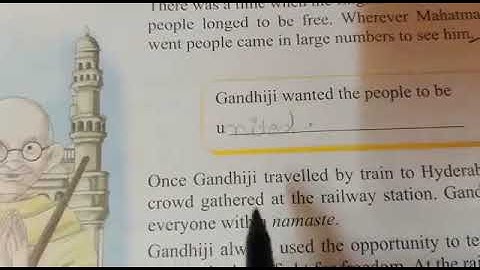 There was a time when the
people longed to be free. Wherever Mahatma
went people came in large numbers to see him,
Gandhiji wanted the people to be
united.
Once Gandhiji travelled by train to Hyderab
crowd gathered at the railway station. Gand
everyone with a namaste.
Gandhiji always used the opportunity to te
for freedom. At the rai